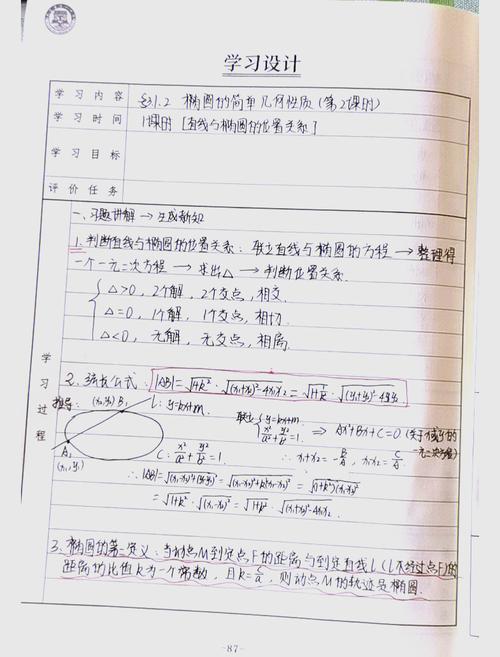 学习设计
学习内容 §3.1.2 椭圆的简单几何性质(第2课时)
学习时间 1课时 [直线与椭圆的位置关系]
学习目标
评价任务
学习过程
一、习题讲解 → 生成新知
1. 判断直线与椭圆的位置关系: 联立直线与椭圆的方程 → 整理得
一个一元二次方程 → 求出△ → 判断位置关系.
△>0, 2个解, 2个交点, 相交.
△=0, 1个解, 1个交点, 相切.
△<0, 无解, 无交点, 相离.
2. 弦长公式: |AB|=√1+k²·√(x₁+x₂)²-4x₁x₂=√1+1/k²·√(y₁+y₂)²-4y₁y₂
推导: (x₂,y₂) B, l: y=kx+m. 联立 {y=kx+m
x²/a²+y²/b²=1. ⇒ Ax²+Bx+C=0 (关于x或y的一元二次方程)
A, (x₁,y₁) C: x²/a²+y²/b²=1. ∴ x₁+x₂=-B/A, x₁x₂=C/A.
∴ |AB|=√(x₁-x₂)²+(y₁-y₂)²=√(x₁-x₂)²+k²(x₁-x₂)²=√(1+k²)(x₁-x₂)²
=√1+k²·√(x₁-x₂)²=√1+k²·√(x₁+x₂)²-4x₁x₂.
3. 椭圆的第二定义: 当动点M到定点F的距离与到定直线l(l不经过点F)的
距离的比值k为一个常数, 且k=c/a, 则动点M的轨迹是椭圆.
-87-